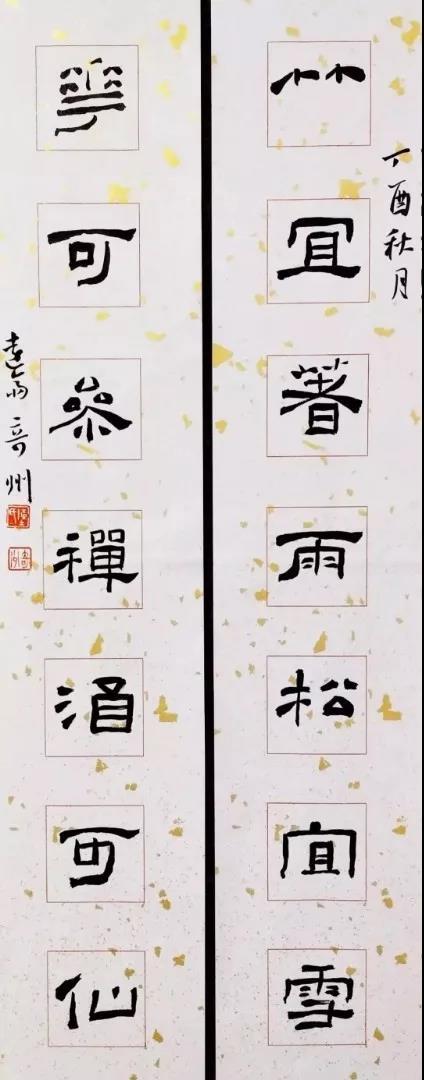 丁酉秋月
竹宜著雨松宜雪
華可參禪酒可仙